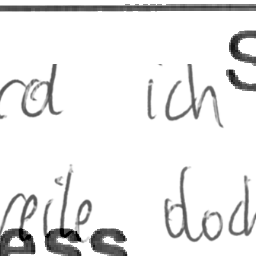 rd ich S
reile doch
ess